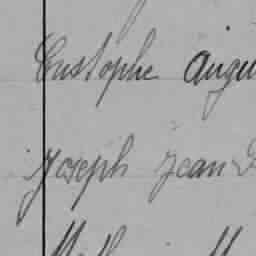 Custophe Augu
Joseph Jean